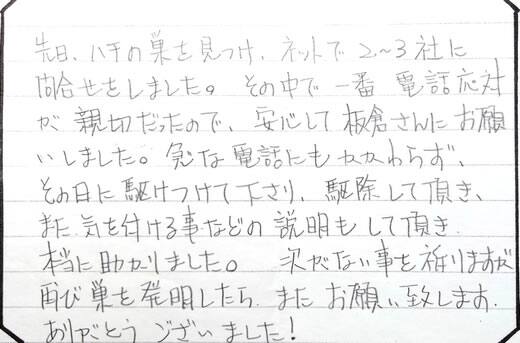 先日、ハチの巣を見つけ、ネットで2~3社に
問合せをしました。その中で一番 電話応対
が 親切だったので、安心して 板倉さんに お願
いしました。急な電話にもかかわらず、
その日に駆けつけて下さり、駆除して頂き、
また 気を付ける事などの 説明も して頂き
本当に助かりました。 次がない事を祈りますが
再び 巣を 発明したら また お願い 致します。
ありがとう ございました!